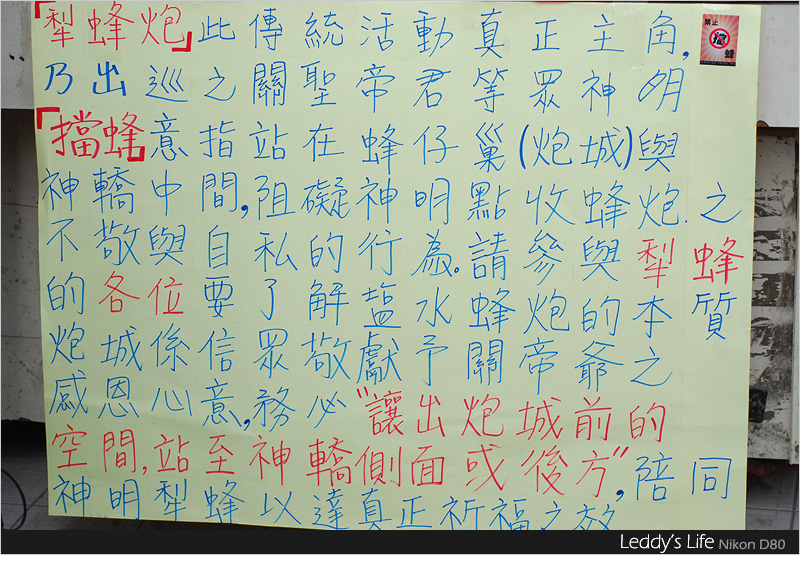 「犁蜂炮」此傳統活動真正主角,
乃出巡之關聖帝君等眾神明
「擋蜂」意指站在蜂仔巢(炮城)與
神轎中間,阻礙神明點收蜂炮.之
不敬與自私的行為。請參與犁蜂
的各位要了解塩水蜂炮的本質
炮城係信眾敬獻予關帝爺之
感恩心意,務必"讓出炮城前的
空間,站至神轎側面或後方",陪同
神明犁蜂以達真正祈福之效
禁止
擋
蜂
Leddy's Life Nikon D80